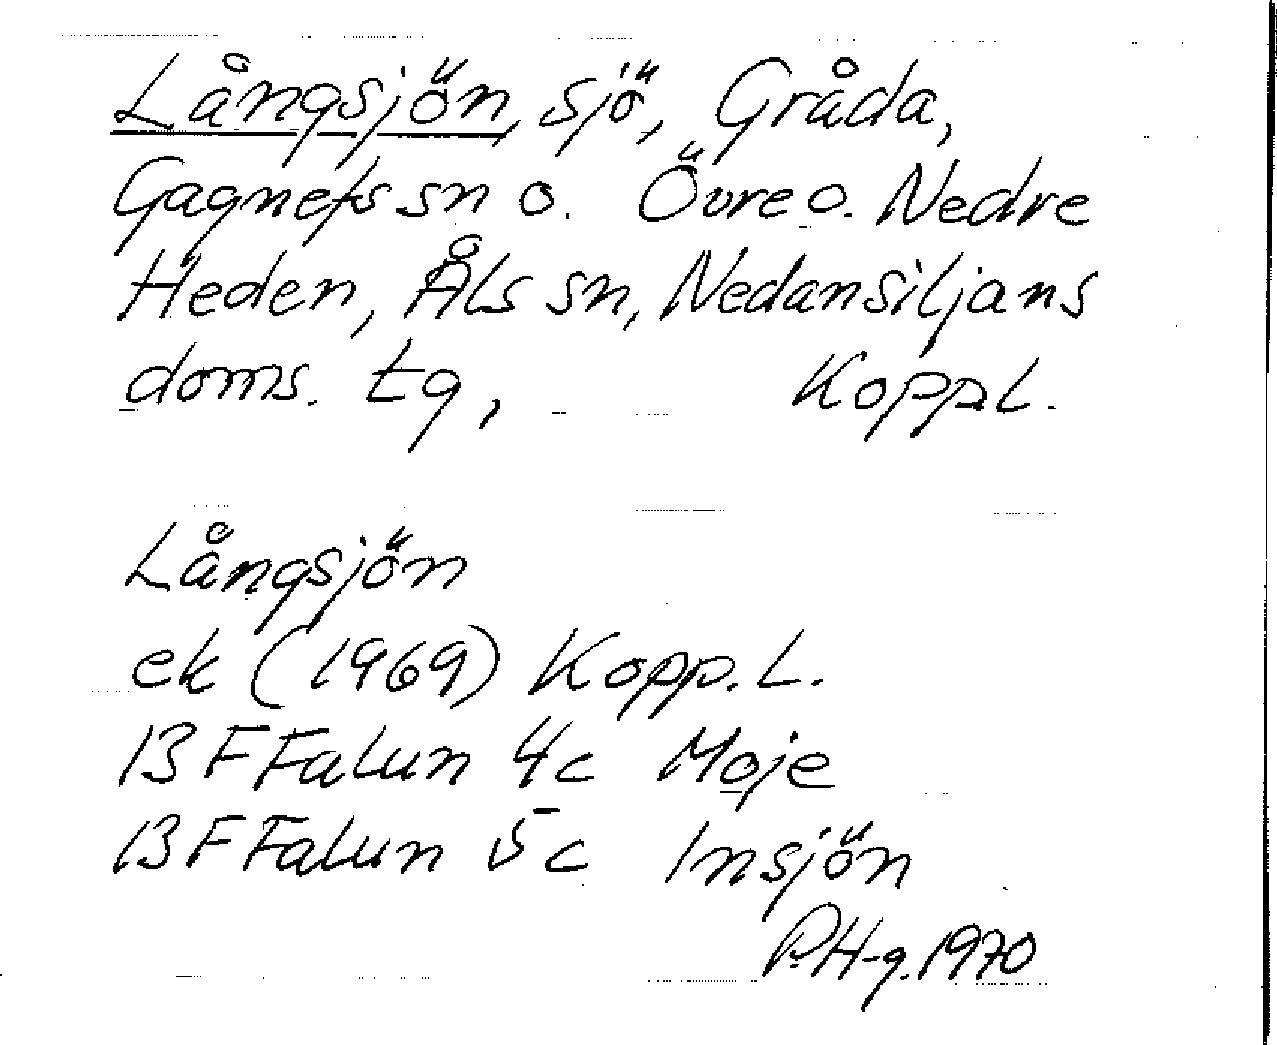 Långsjön, sjö, Gråda,
Gagnefs sn o. Övre o. Nedre
Heden, Åls sn, Nedansiljans
doms. tg, Koppl.
Långsjön
ek (1969) Kopp. L.
13 F Falun 4c Moje
13 F Falun 5c Insjön
P.H-g. 1970